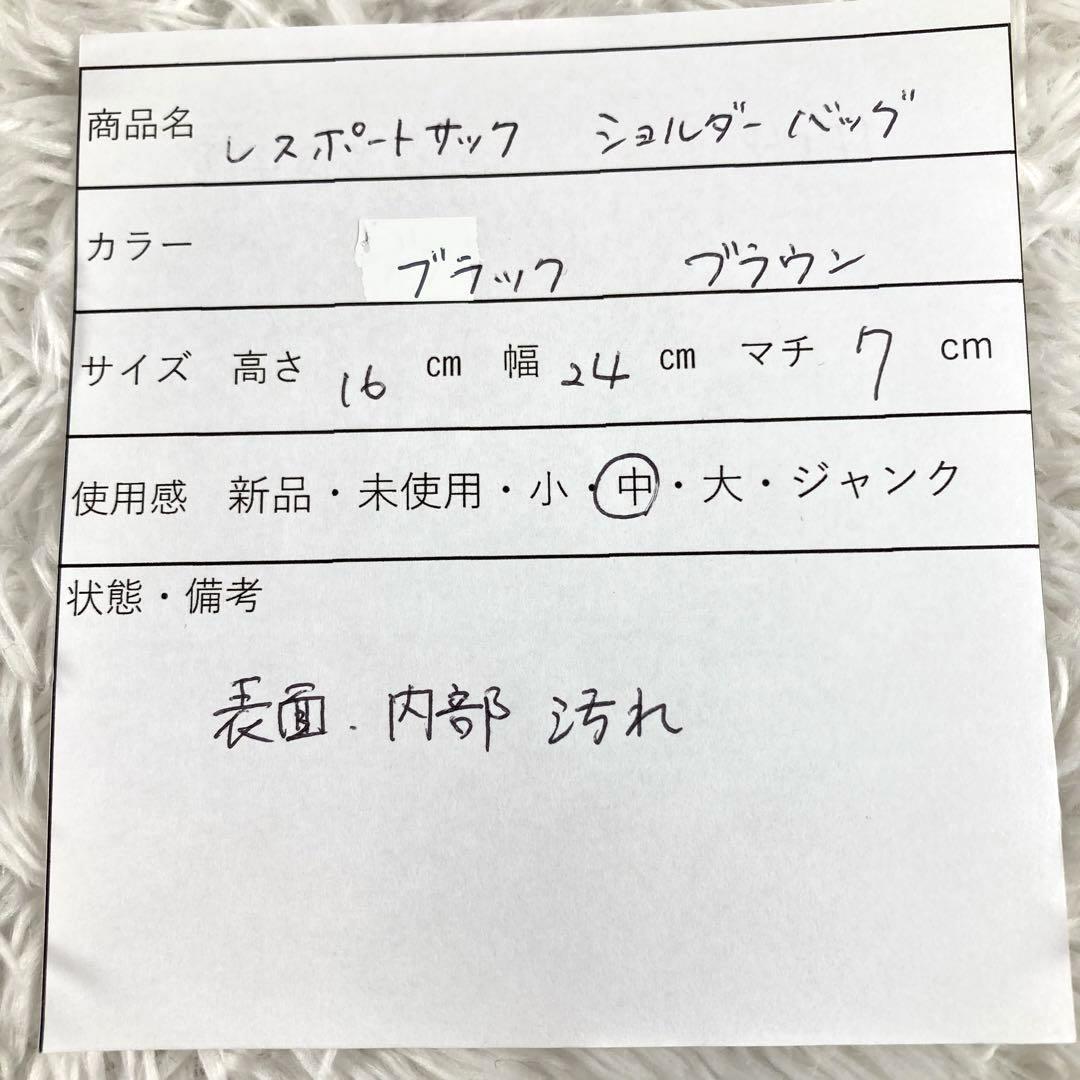 商品名 レスポートサック ショルダーバッグ
カラー ブラック ブラウン
サイズ 高さ 16 cm 幅 24 cm マチ 7 cm
使用感 新品・未使用・小・中・大・ジャンク
状態・備考
表面.内部 汚れ